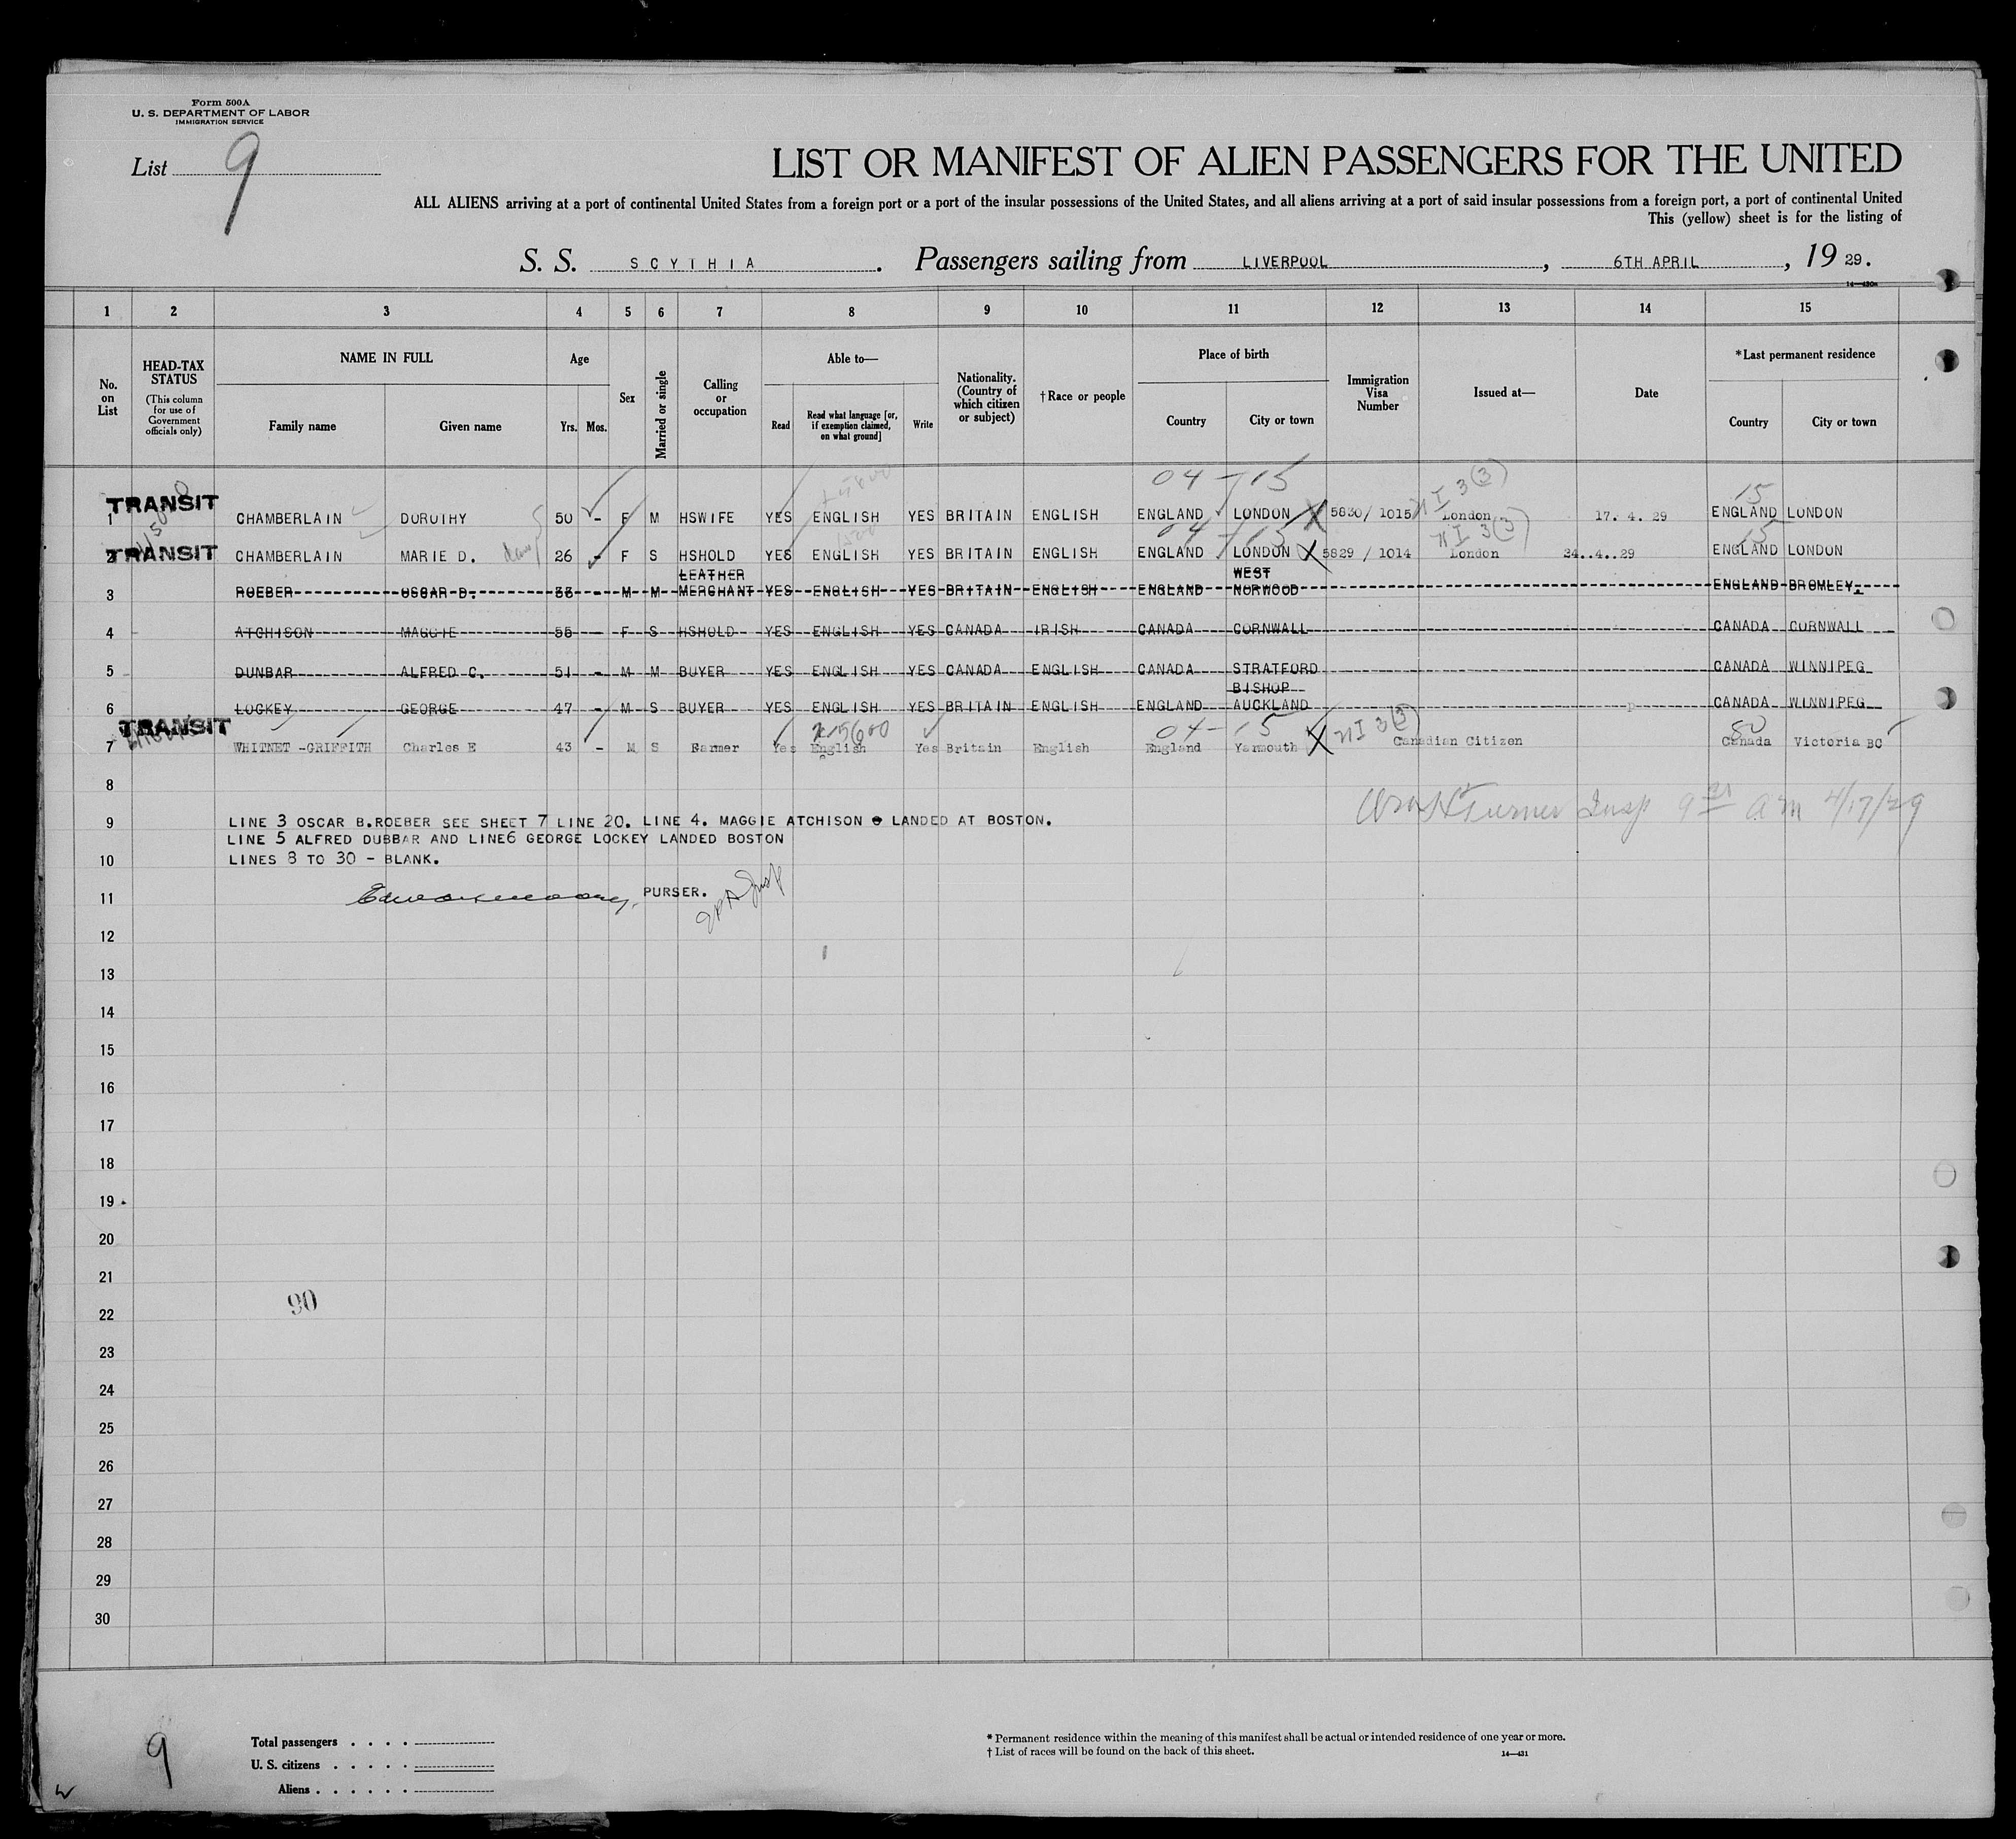 Form 500A
U. S. DEPARTMENT OF LABOR
IMMIGRATION SERVICE
List 9
LIST OR MANIFEST OF ALIEN PASSENGERS FOR THE UNITED
ALL ALIENS arriving at a port of continental United States from a foreign port or a port of the insular possessions of the United States, and all aliens arriving at a port of said insular possessions from a foreign port, a port of continental United
This (yellow) sheet is for the listing of
S. S. SCYTHIA. Passengers sailing from LIVERPOOL, 6TH APRIL, 19 29.
14—430a
1 2 3 4 5 6 7 8 9 10 11 12 13 14 15
No. on List
HEAD-TAX STATUS (This column for use of Government officials only)
NAME IN FULL Family name Given name
Age Yrs. Mos.
Sex
Married or single
Calling or occupation
Able to— Read Read what language [or, if exemption claimed, on what ground] Write
Nationality. (Country of which citizen or subject)
†Race or people
Place of birth Country City or town
Immigration Visa Number
Issued at—
Date
*Last permanent residence Country City or town
04 - 15 15
TRANSIT
1 CHAMBERLAIN DOROTHY 50 - F M HSWIFE YES ENGLISH YES BRITAIN ENGLISH ENGLAND LONDON 5830/ 1015 London 17. 4. 29 ENGLAND LONDON
04 - 15 15
TRANSIT
2 CHAMBERLAIN MARIE D. 26 - F S HSHOLD YES ENGLISH YES BRITAIN ENGLISH ENGLAND LONDON 5829 / 1014 London 24..4..29 ENGLAND LONDON
3 ROEBER OSCAR B. 33 - M M LEATHER MERCHANT YES ENGLISH YES BRITAIN ENGLISH ENGLAND WEST NORWOOD ENGLAND BROMLEY.
4 ATCHISON MAGGIE 55 - F S HSHOLD YES ENGLISH YES CANADA IRISH CANADA CORNWALL CANADA CORNWALL
5 DUNBAR ALFRED C. 51 - M M BUYER YES ENGLISH YES CANADA ENGLISH CANADA STRATFORD CANADA WINNIPEG
6 LOCKEY GEORGE 47 - M S BUYER YES ENGLISH YES BRITAIN ENGLISH ENGLAND BISHOP AUCKLAND CANADA WINNIPEG
TRANSIT
04 - 15 80
7 WHITNET -GRIFFITH Charles E 43 - M S Farmer Yes English Yes Britain English England Yarmouth Canadian Citizen Canada Victoria BC
8
Turner Insp 9 am 4/17/29
9 LINE 3 OSCAR B.ROEBER SEE SHEET 7 LINE 20. LINE 4. MAGGIE ATCHISON LANDED AT BOSTON.
LINE 5 ALFRED DUBBAR AND LINE6 GEORGE LOCKEY LANDED BOSTON
10 LINES 8 TO 30 - BLANK.
11 PURSER.
12
13
14
15
16
17
18
19
20
21
90
22
23
24
25
26
27
28
29
30
9
Total passengers . . . .
U. S. citizens . . . . .
Aliens . . . . . .
* Permanent residence within the meaning of this manifest shall be actual or intended residence of one year or more.
† List of races will be found on the back of this sheet.
14—431